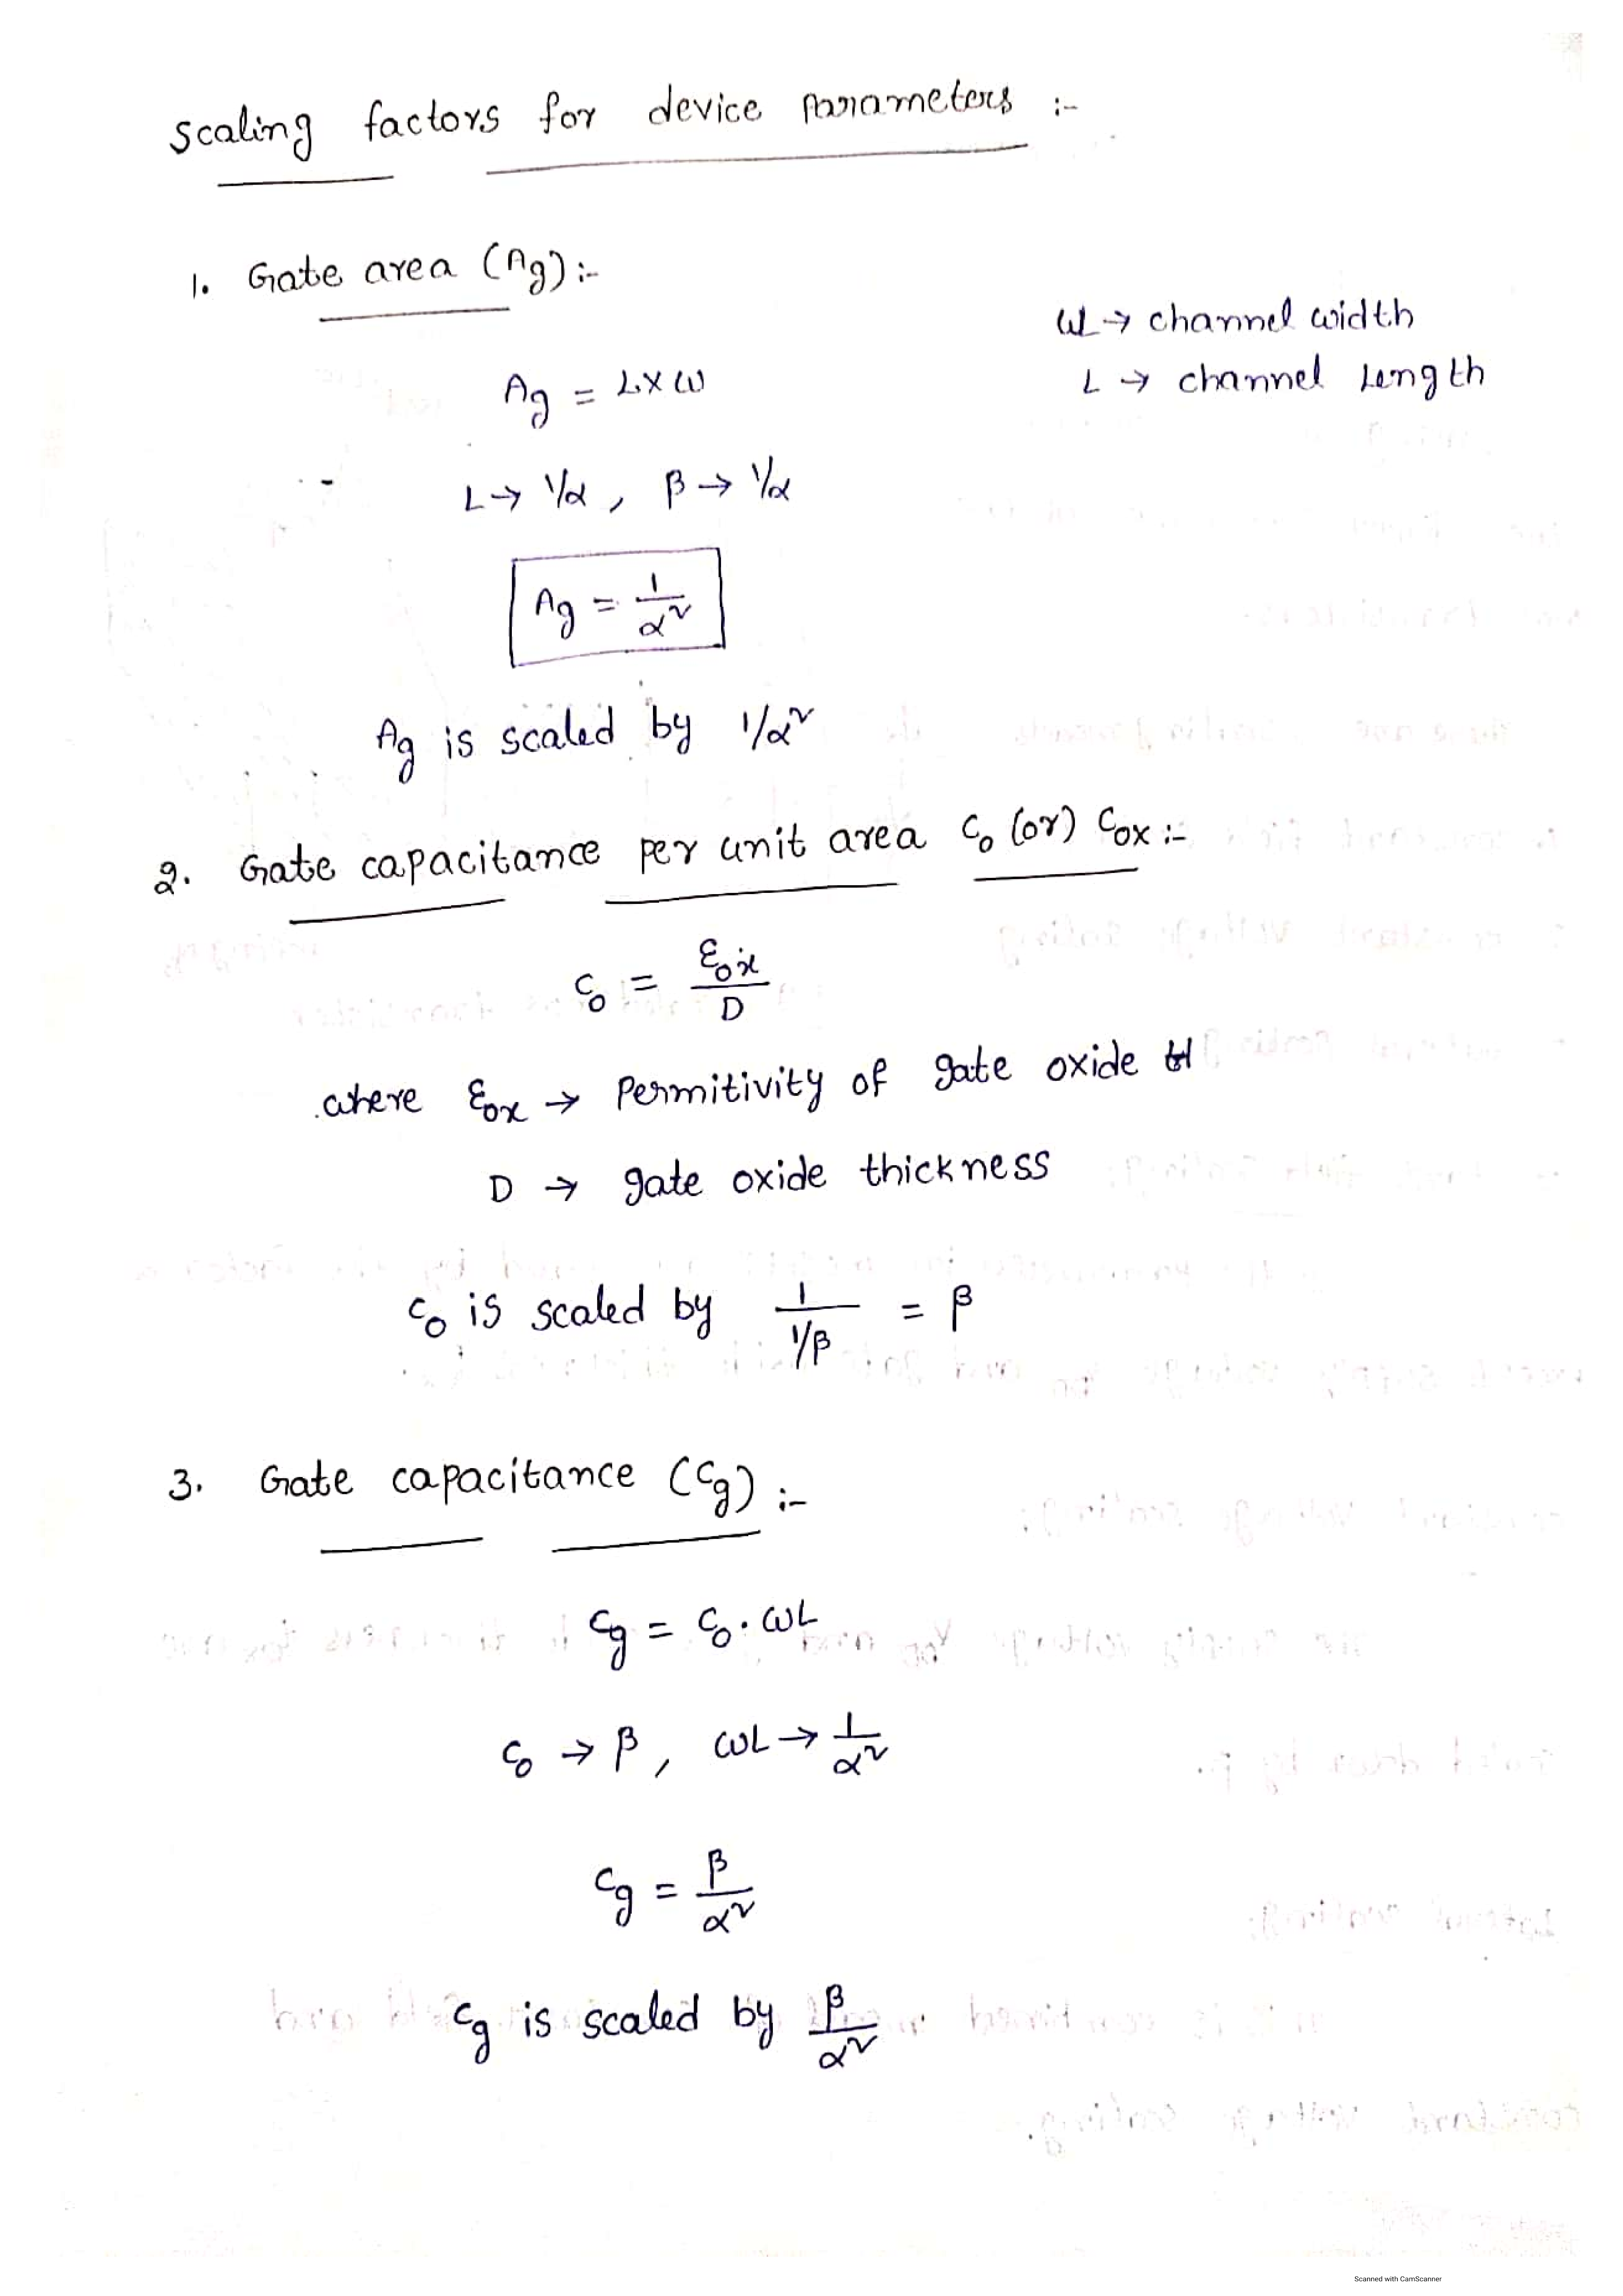 Scaling factors for device parameters :-
1. Gate area (Ag) :-
W → channel width
Ag = L×W
L → channel Length
L → 1/α , β → 1/α
Ag = 1/α²
Ag is scaled by 1/α²
2. Gate capacitance per unit area C₀ (or) Cox :-
C₀ = εox/D
where εox → Permitivity of gate oxide
D → gate oxide thickness
C₀ is scaled by 1/(1/β) = β
3. Gate capacitance (Cg) :-
Cg = C₀ . WL
C₀ → β , WL → 1/α²
Cg = β/α²
Cg is scaled by β/α²
Scanned with CamScanner